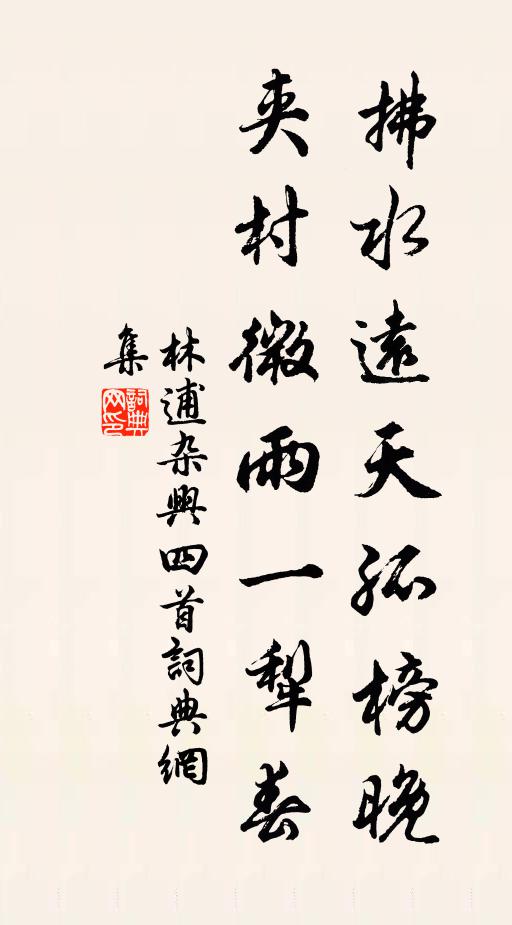 拂水遠天孤榜晚
夾村微雨一犁春
林逋杂興四首詞典網
集
詞典
网印